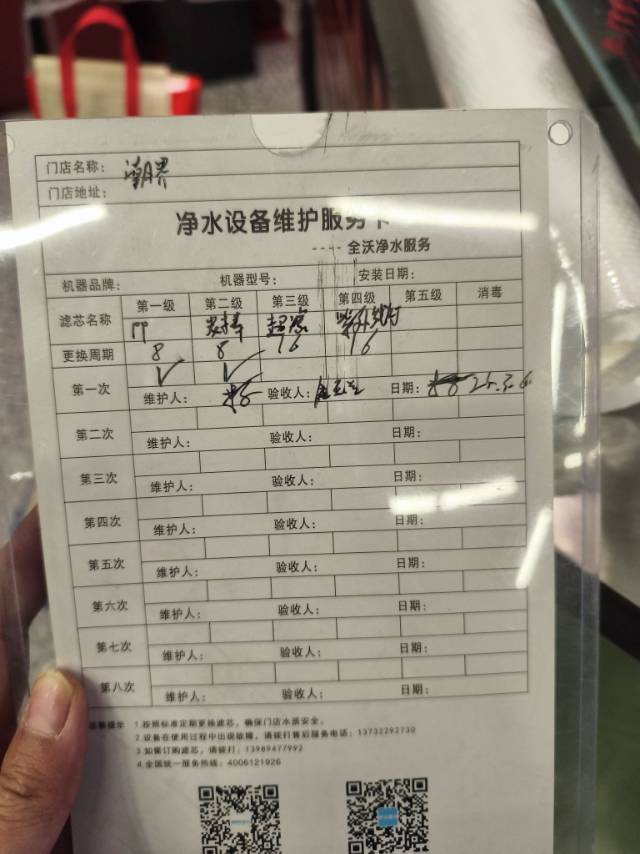 门店名称：
门店地址：
净水设备维护服务卡
---- 全沃净水服务
机器品牌： 机器型号： 安装日期：
滤芯名称 第一级 第二级 第三级 第四级 第五级 消毒
PP 炭棒 超滤
更换周期 8 8 16 16
第一次 √ √
维护人： 验收人： 日期： 25.3.6
第二次 维护人： 验收人： 日期：
第三次 维护人： 验收人： 日期：
第四次 维护人： 验收人： 日期：
第五次 维护人： 验收人： 日期：
第六次 维护人： 验收人： 日期：
第七次 维护人： 验收人： 日期：
第八次 维护人： 验收人： 日期：
提示 1.按照标准定期更换滤芯，确保门店水质安全。
2.设备在使用过程中出现故障，请拨打售后服务电话：13732292730
3.如需订购滤芯，请拨打：13989477992
4.全国统一服务热线：4006121926